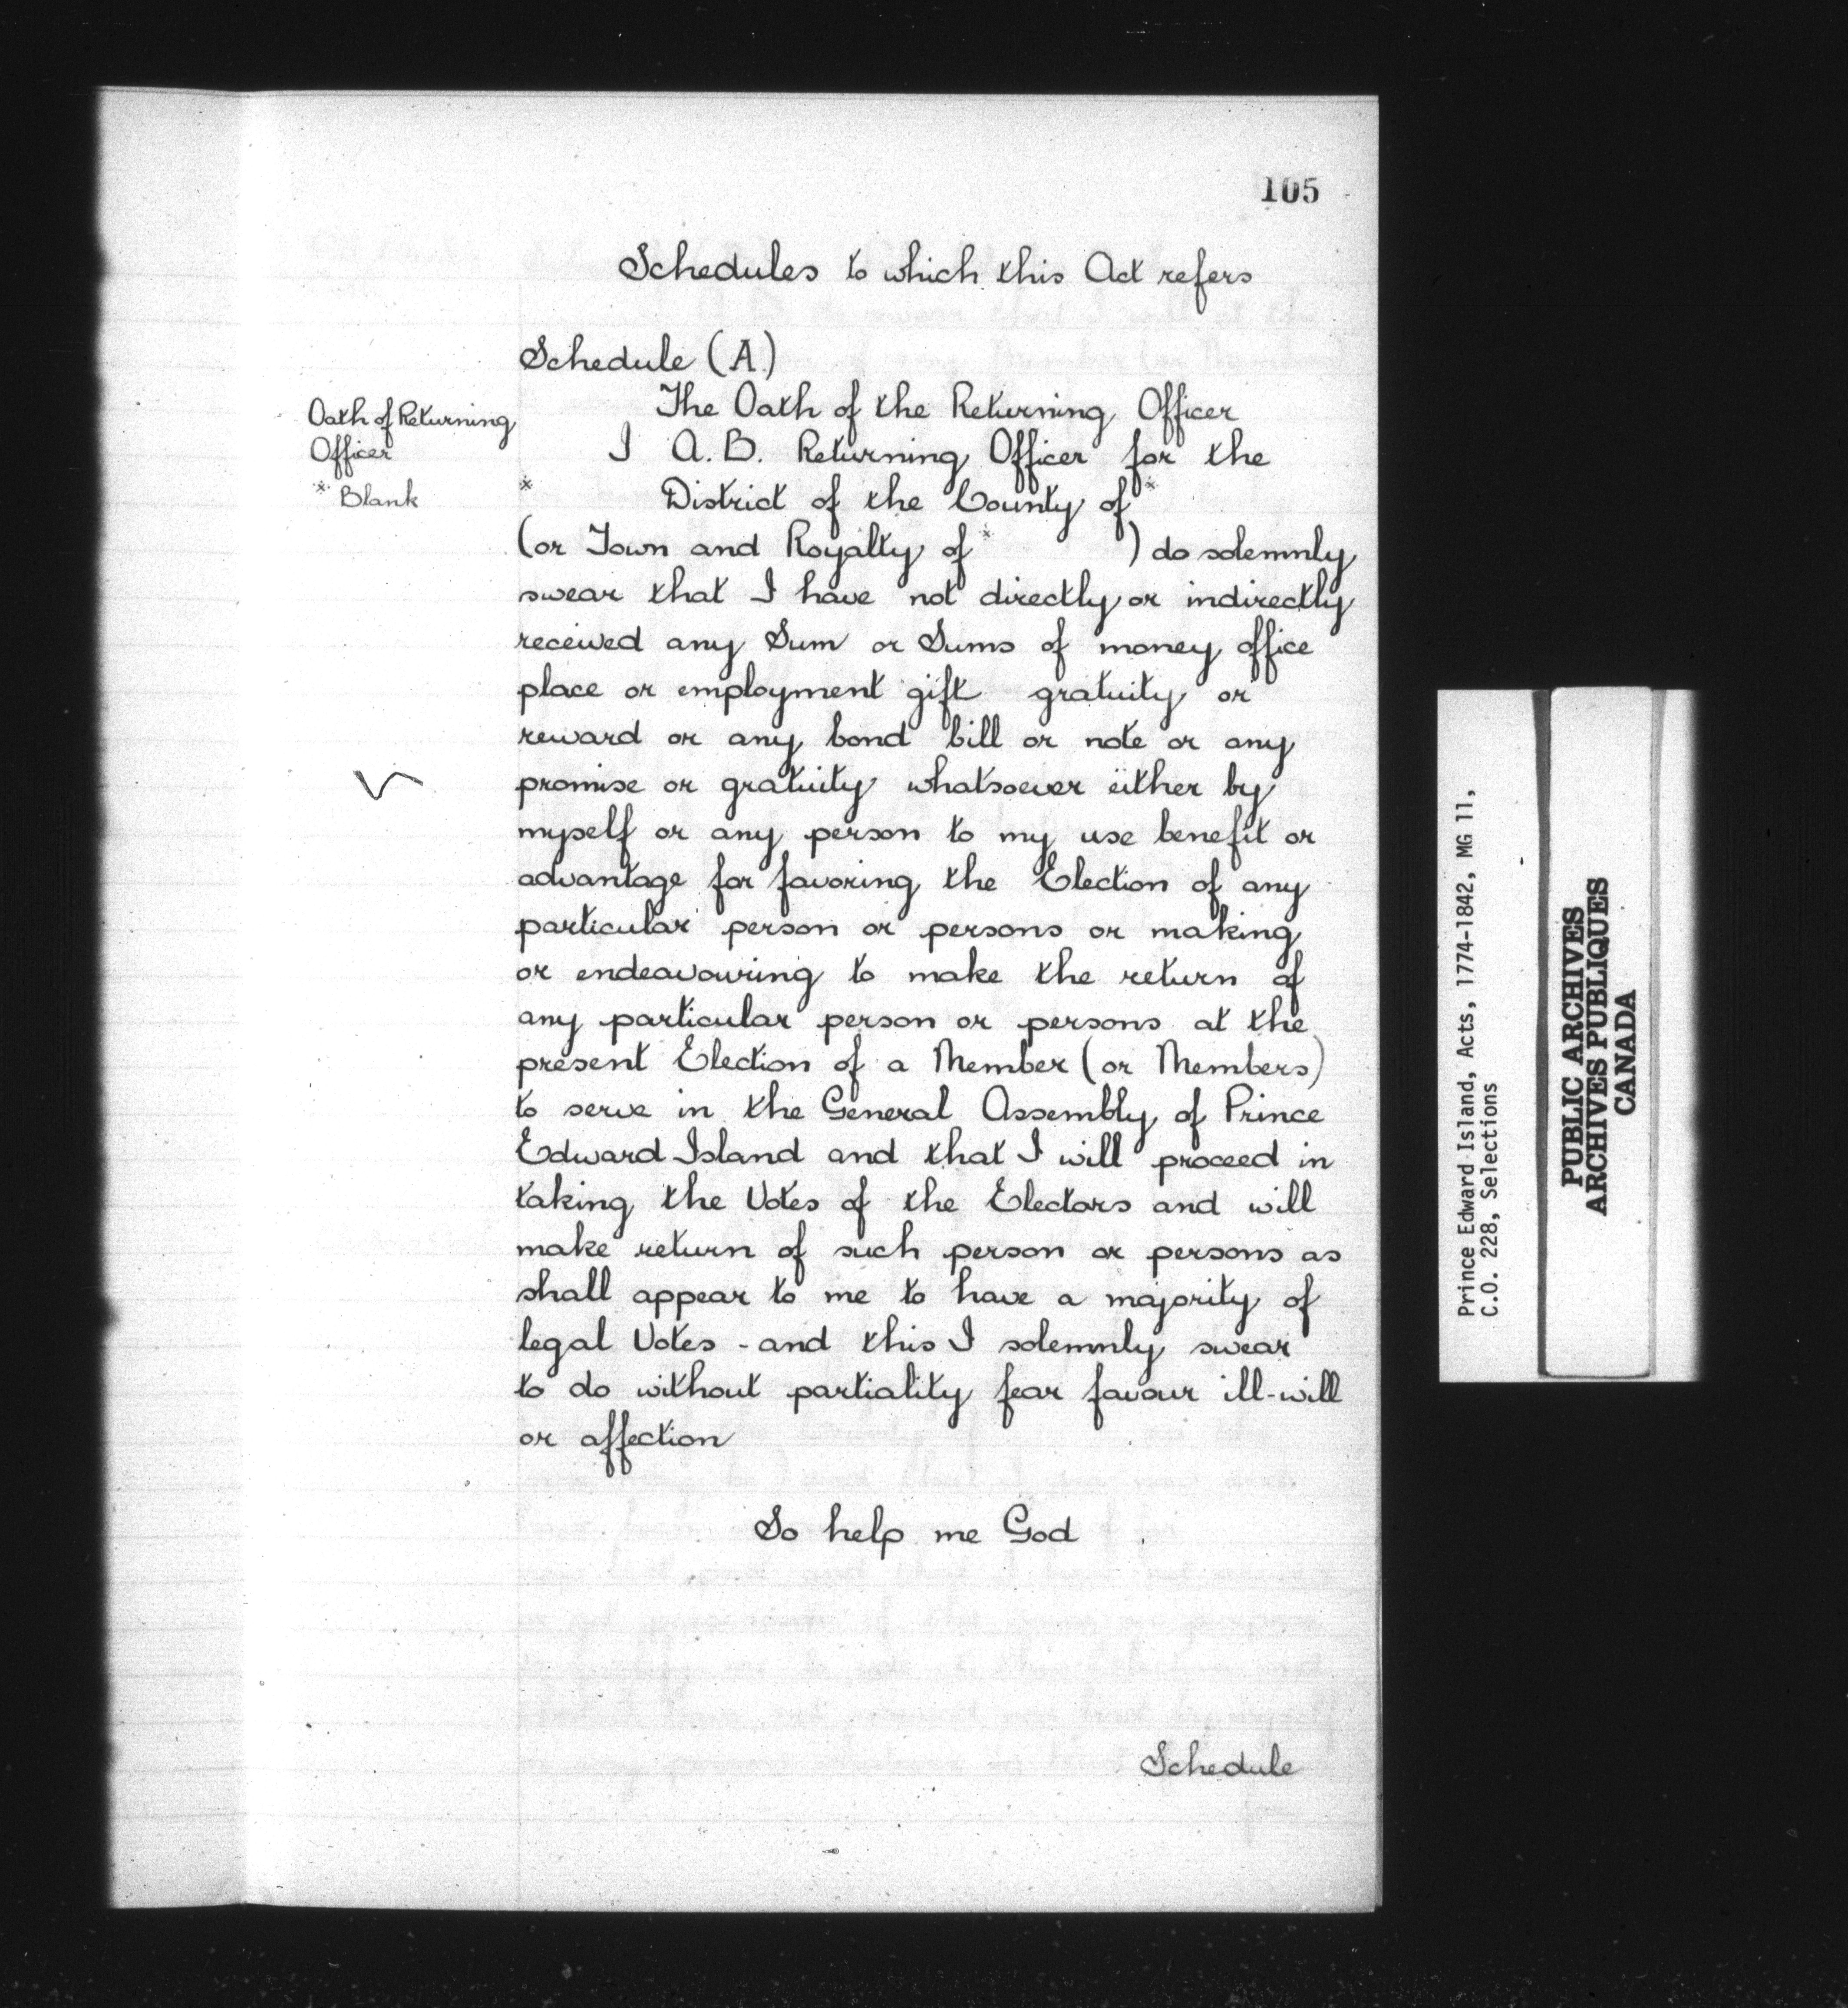 105
Schedules to which this Act refers
Schedule (A)
Oath of Returning
Officer
* Blank
The Oath of the Returning Officer
I A. B. Returning Officer for the
* District of the County of *
(or Town and Royalty of * ) do solemnly
swear that I have not directly or indirectly
received any Sum or Sums of money office
place or employment gift gratuity or
reward or any bond bill or note or any
promise or gratuity whatsoever either by
myself or any person to my use benefit or
advantage for favoring the Election of any
particular person or persons or making
or endeavouring to make the return of
any particular person or persons at the
present Election of a Member (or Members)
to serve in the General Assembly of Prince
Edward Island and that I will proceed in
taking the Votes of the Electors and will
make return of such person or persons as
shall appear to me to have a majority of
legal Votes - and this I solemnly swear
to do without partiality fear favour ill-will
or affection
So help me God
Schedule
Prince Edward Island, Acts, 1774-1842, MG 11,
C.O. 228, Selections
PUBLIC ARCHIVES
ARCHIVES PUBLIQUES
CANADA